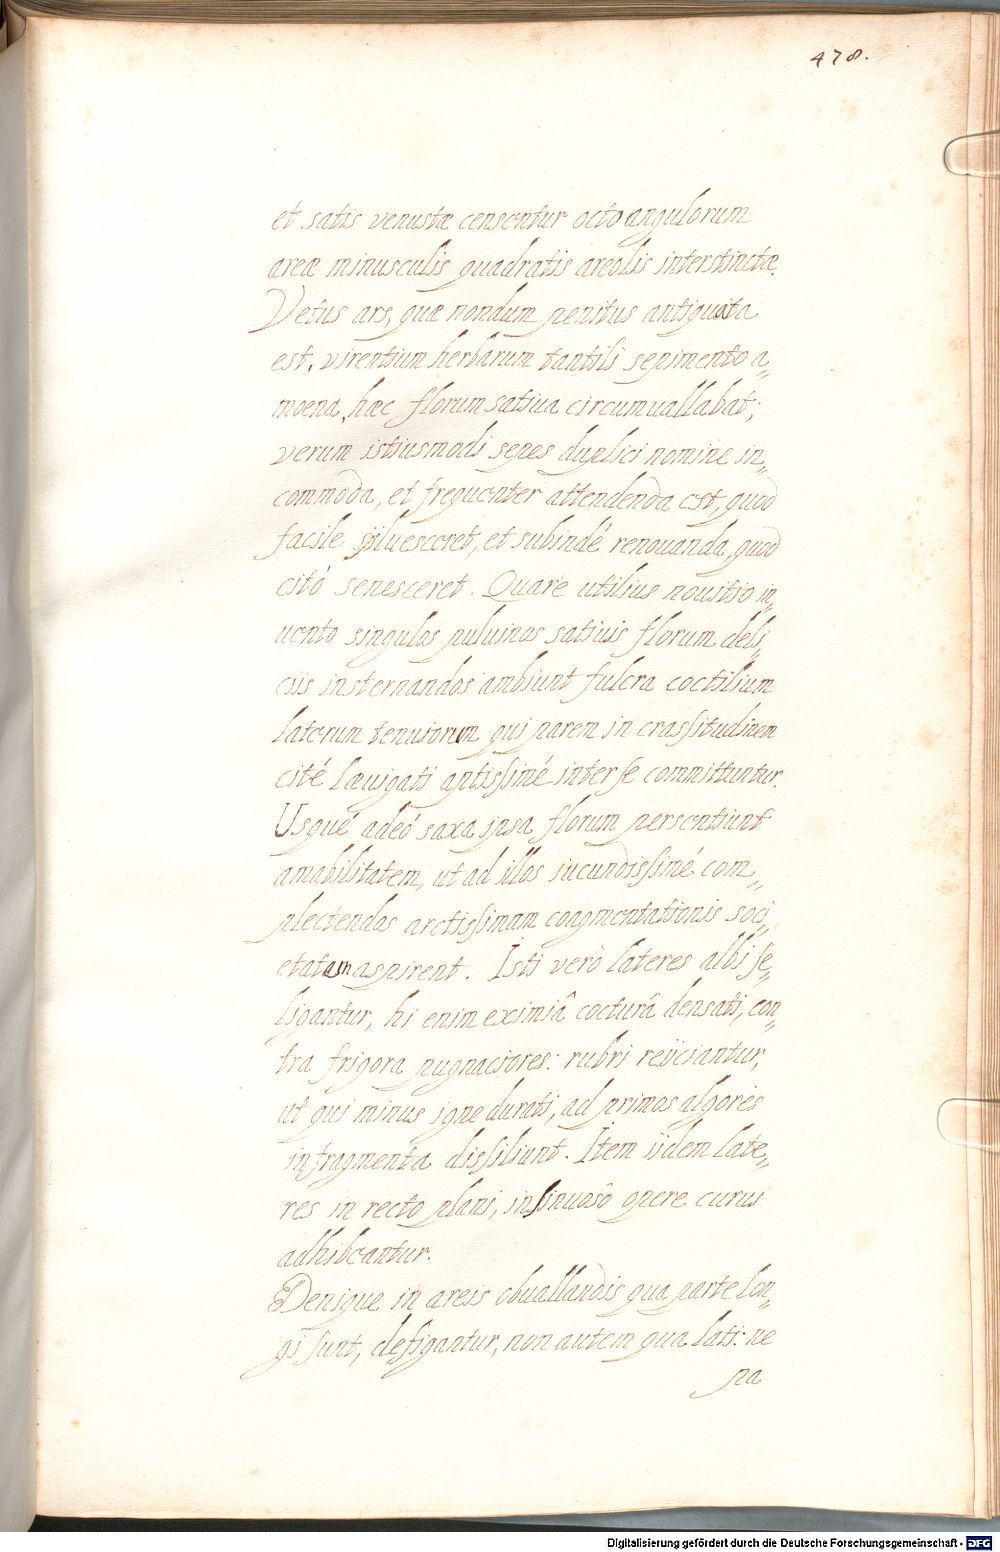 478.
et satis venustæ censentur octo angulorum
areæ minusculis quadratis areolis interstinctæ.
Vetus ars, quæ nondum penitus antiquata
est, virentium herbarum tantili sepimento a„
moena hæc florum satiua circumuallabat;
verum istiusmodi sepes duplici nomine in„
commoda, et frequenter attendenda est, quod
facile syluesceret, et subindé renouanda, quod
citó senesceret. Quare utilius nouitio in„
uento singulos puluinos satiuis florum deli„
ciis insternandos ambiunt fulcra coctilium
laterum tenuiorum qui parem in crassitudinem
cité læuigati aptissimé inter se committuntur.
Usqué adeó saxa ipsa florum persentiunt
amabilitatem, ut ad illos iucundissimé com„
plectendos arctissimam coagmentationis soci„
etatam aspirent. Isti verò lateres albi se„
ligantur, hi enim eximiâ cocturâ densati, con„
tra frigora pugnaciores: rubri reiiciantur,
ut qui minus igne durati, ad primos algores
in fragmenta dissiliunt. Item iidem late„
res in recto plani, in sinuosô opere curui
adhibeantur.
Denique in areis obuallandis qua parte lon„
gi sunt, defigantur, non autem qua lati: ne
pa
Digitalisierung gefördert durch die Deutsche Forschungsgemeinschaft - DFG